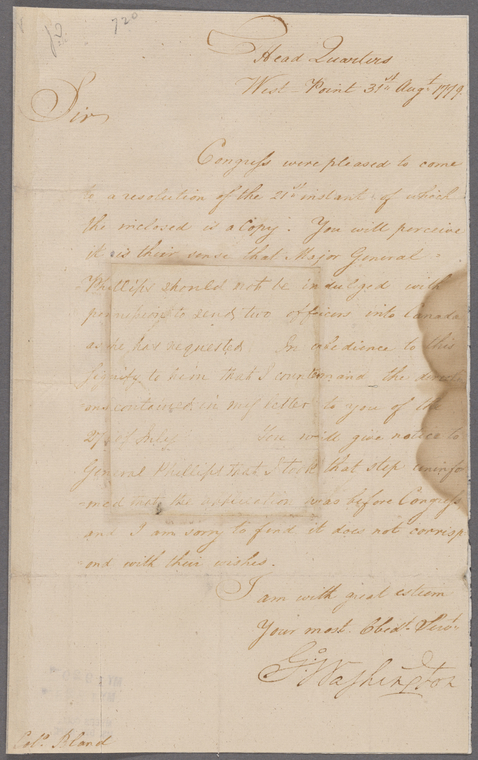 720
Head Quarters
West-Point 31st Augt. 1779.
Sir
Congress were pleased to come
to a resolution of the 21st instant of which
the inclosed is a Copy. You will perceive
it is their sense that Major General
Phillips should not be indulged with
permission to send two officers into Canada
as he has requested. In obedience to this
signify to him that I countermand the
ons contained in my letter to you of the
27th of July. You will give notice to
General Phillips that I took that step uninfor
-med that the application was before Congress
and I am sorry to find it does not corrisp
-ond with their wishes.
I am with great esteem
Your most Obedt. Servt.
Go Washington
Colo. Bland